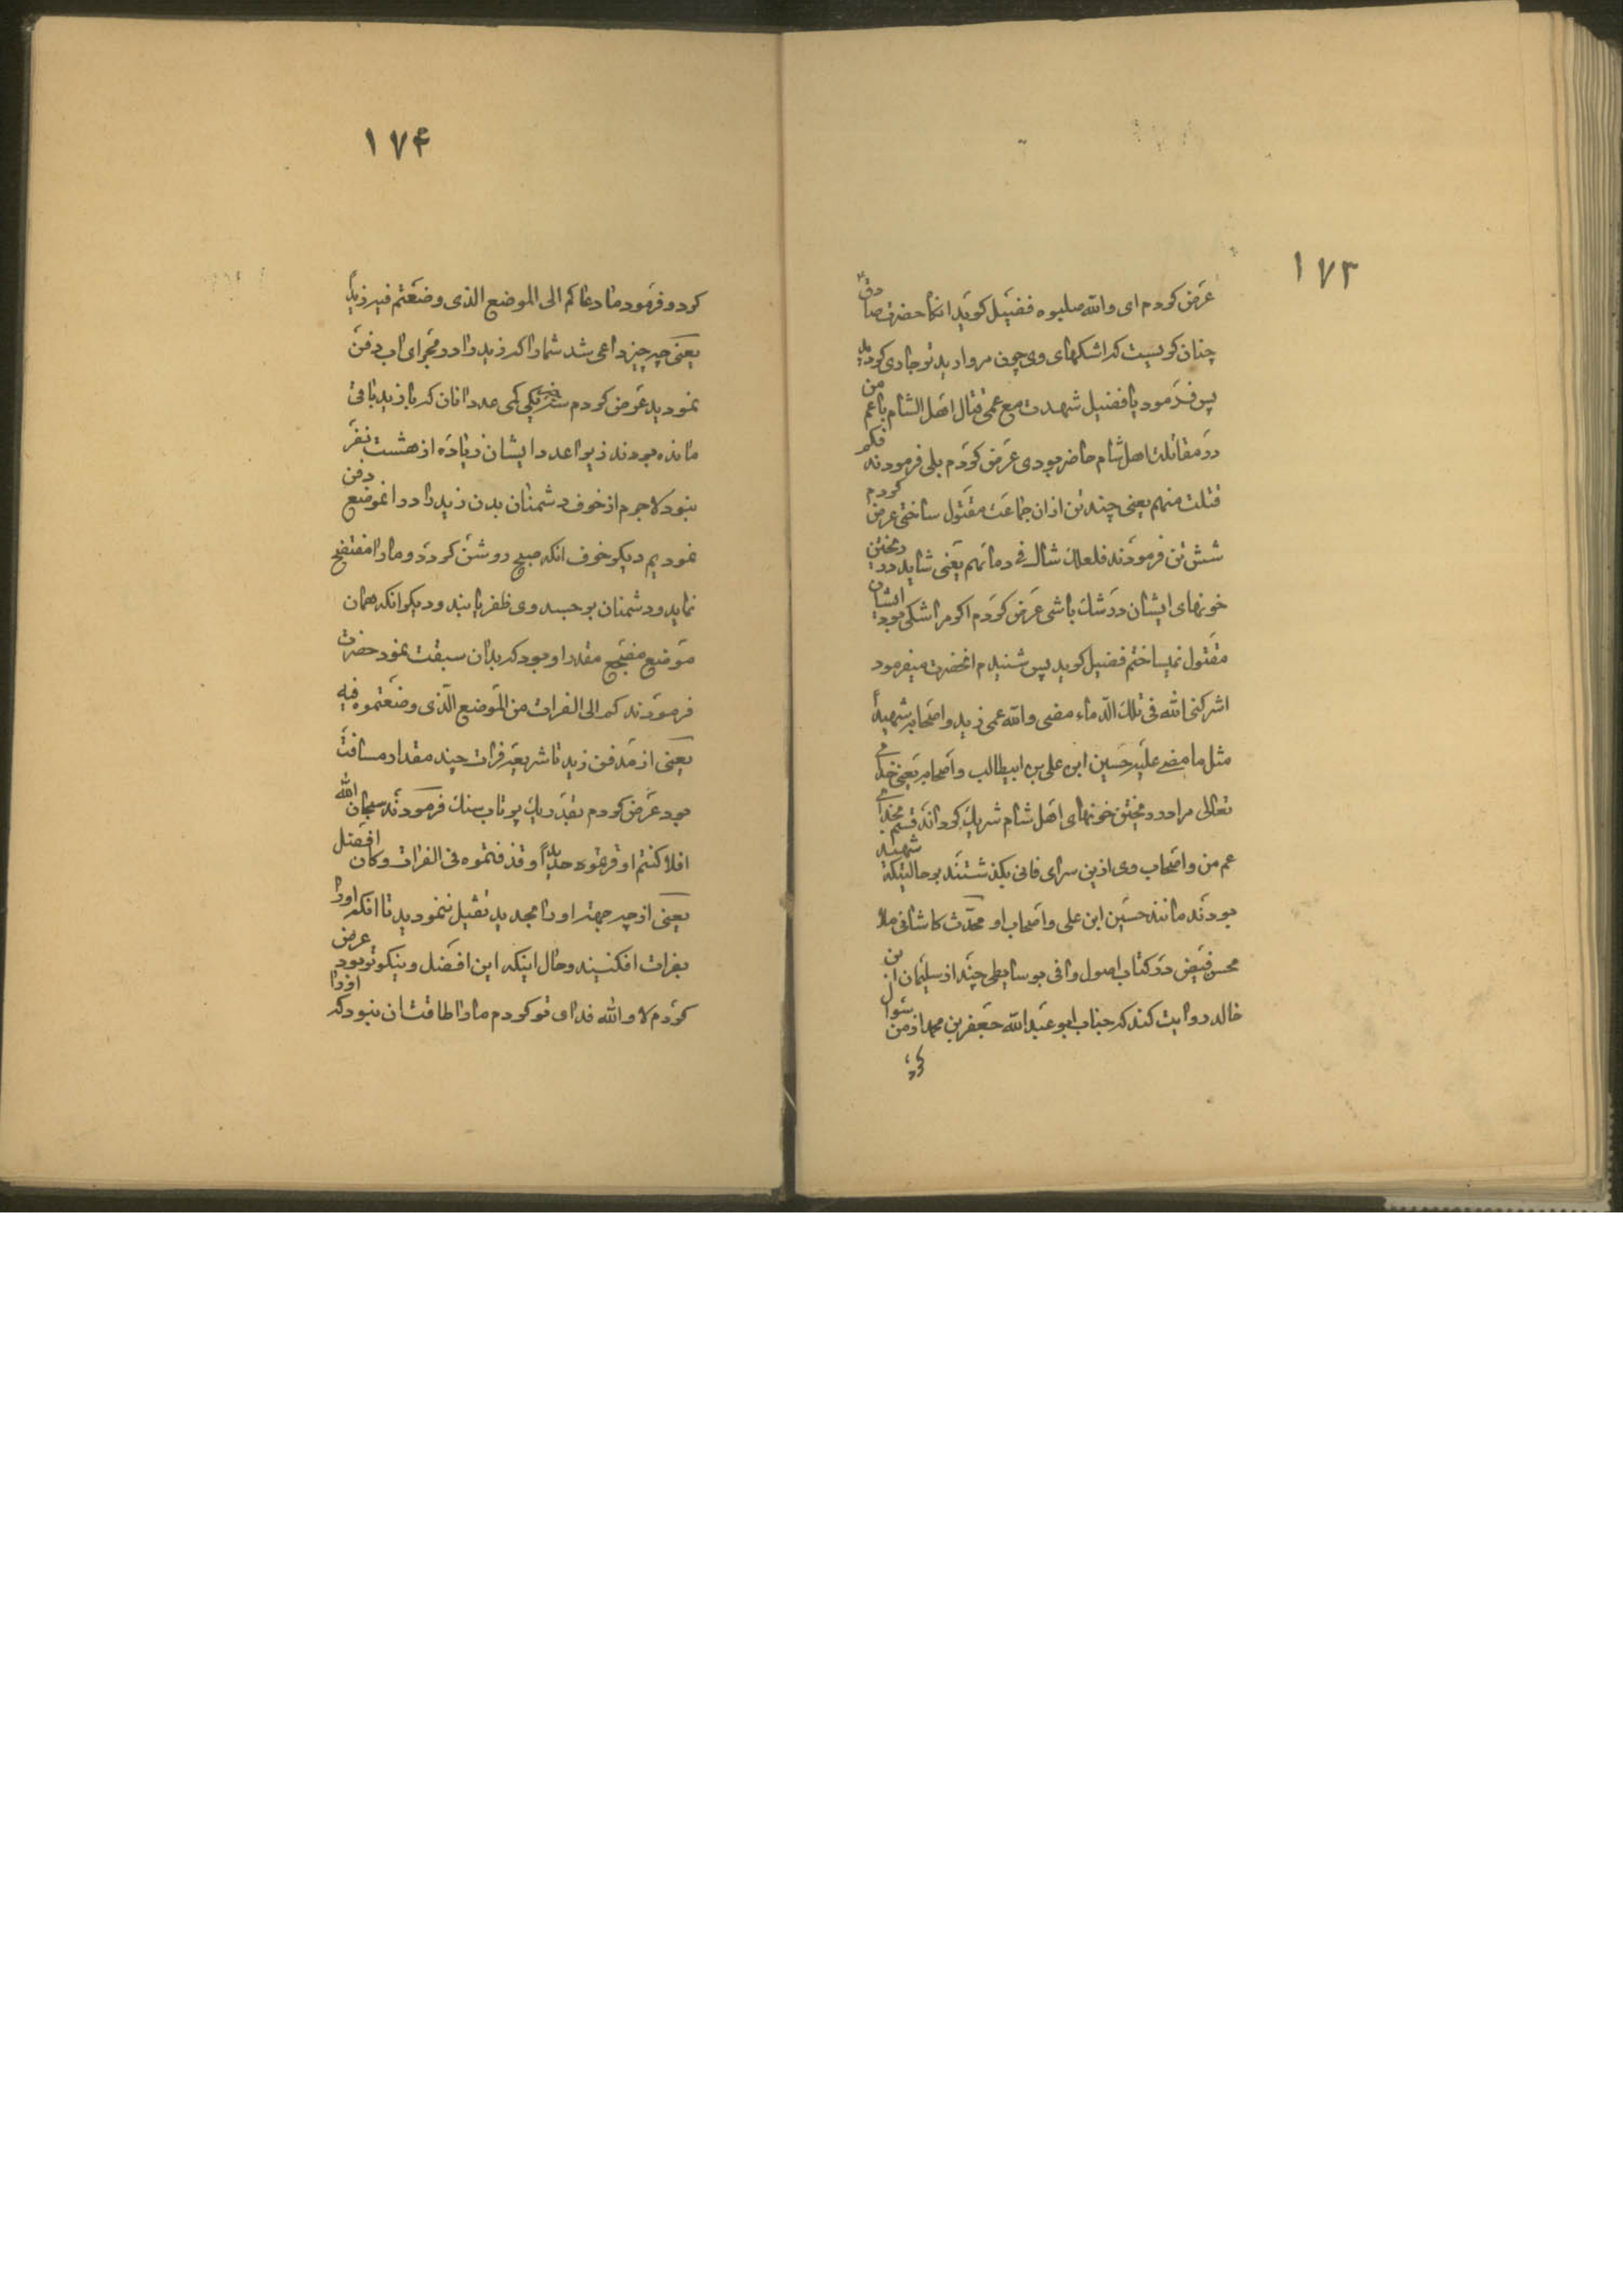 ١٧٣
عرض کردم ای والله صلبوه فضیل کوید انکاه حضرت صادق
چنان کریست که اشکهای وی چون مروارید تو جاری کردید
پس فرمود یا فضیل شهدت مع عمی قتال اهل الشام با عم من
در مقاتلت اهل شام حاضر بودی عرض کردم بلی فرمودند فکم
قتلت منهم یعنی چند تن از ان جماعت مقتول ساختی عرض کردم
شش تن فرمودند فلعلک شاک فی دمائهم یعنی شاید در ریختن
خونهای ایشان در شک باشی عرض کردم اکر مرا شکی بودی ایشان
مقتول نمیساختم فضیل کوید پس شنیدم انحضرت میفرمود
اشرکنی الله فی تلک الدماء مضی والله عمی زید و اصحابه شهیداً
مثل ما مضی علیه حسین ابن علی بن ابیطالب و اصحابه یعنی خدای
تعالی مرا در ریختن خونهای اهل شام شریک کرداند قسم بخدای
عم من و اصحاب وی ازین سرای فانی بکذشتند بر حالیتکه شهید
بودند مانند حسین ابن علی و اصحاب او محدّث کاشانی ملا
محسن فیض در کتاب اصول وافی بوسایطی چند از سلیمان بن
خالد روایت کند که جناب ابو عبدالله جعفر بن محمد از من سئوال
کرد
١٧۴
کرد و فرمود ما دعاکم الی الموضع الذی وضعتم فیه زیداً
یعنی چه چیز داعی شد شما را که زید را در مجرای اب دفن
نمودید عرض کردم یکی کمی عدد انان که با زید باقی
مانده بودند زیرا عدد ایشان زیاده از هشت نفر
نبود لاجرم از خوف دشمنان بدن زید را در انموضع دفن
نمودیم دیکر خوف انکه صبح روشن کردد و ما را مفتضح
نماید و دشمنان بر جسد وی ظفر یابند و دیکر انکه همان
موضع مضجع مقدر او بود که بدان سبقت نمود حضرت
فرمودند کم الی الفرات من الموضع الّذی وضعتموه فیه
یعنی از مدفن زید تا شریعه فرات چند مقدار مسافت
بود عرض کردم بقدر یک پرتاب سنک فرمودند سبحان الله
افلا کنتم اوقرتموه حدیداً و قذفتموه فی الفرات وکان افضل
یعنی از چه جهته او را بحدید ثقیل ننمودید تا انکه او را
بفرات افکنید و حال اینکه این افضل و نیکوتر بود عرض
کردم لا والله فدای تو کردم ما را طاقت ان نبود که او را